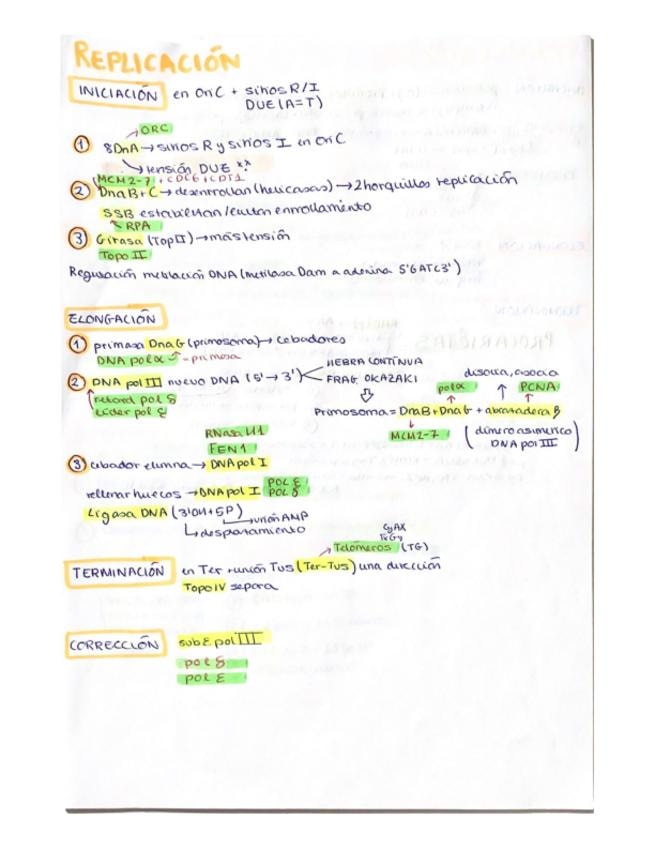 REPLICACIÓN
INICIACIÓN en OriC + sitios R/I
DUE (A=T)
ORC
① 8DnA → sitios R y sitios I en OriC
tensión DUE
MCM2-7 + CDC6 + CDT1
② DnaB+C → desenrollan (helicasas) → 2 horquillas replicación
SSB estabilizan/evitan enrollamiento
RPA
③ Girasa (Top II) → más tensión
Topo II
Regulación metilación DNA (metilasa Dam a adenina 5'GATC3')
ELONGACIÓN
① primasa DnaG (primosoma) → cebadores
DNA pol α = primasa
HEBRA CONTINUA
② DNA pol III nuevo DNA (5' → 3') FRAG. OKAZAKI
disocia, asocia
retard pol δ
pol α PCNA
Líder pol ε
Primosoma = DnaB + DnaG + abrazadera β
MCM2-7 (dímero asimétrico DNA pol III)
RNasa H1
FEN1
③ cebador elimina → DNA pol I
rellenar huecos → DNA pol I pol ε
pol δ
Ligasa DNA (3'OH+5P)
unión AMP
desfosfamiento
Telómeros (TG)
TERMINACIÓN en Ter + unión Tus (Ter-Tus) una dirección
Topo IV separa
CORRECCIÓN sub ε pol III
pol δ
pol ε